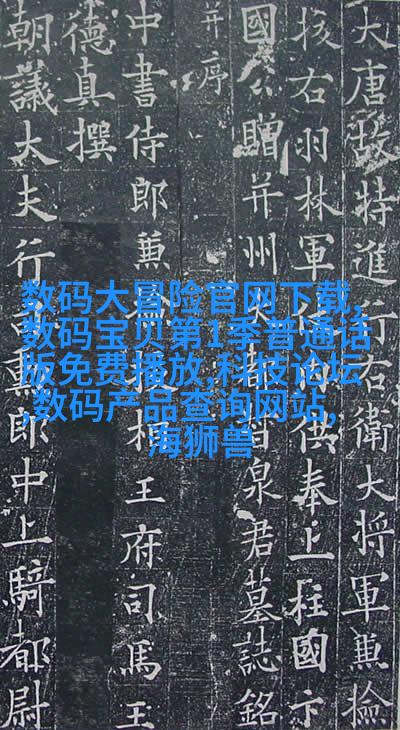 大唐故特進行右衛大將軍兼檢
校右羽林軍供奉上柱國卞
國公贈并州大泉君墓誌銘
并序
中書侍郎兼相王府司馬王
德真撰
朝議大夫行勳郎中上騎都尉
数码大冒险官网下载,
数码宝贝第1季普通话
版免费播放,科技论坛
,数码产品查询网站,
海狮兽